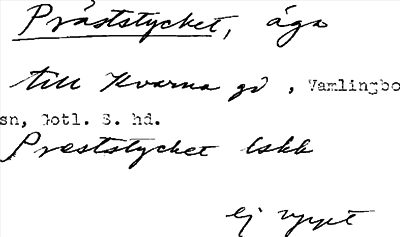 Präststycket, äga
till Kvarna gd, Vamlingbo
sn, Gotl. S. hd.
Præststycket lskk
ej uppt